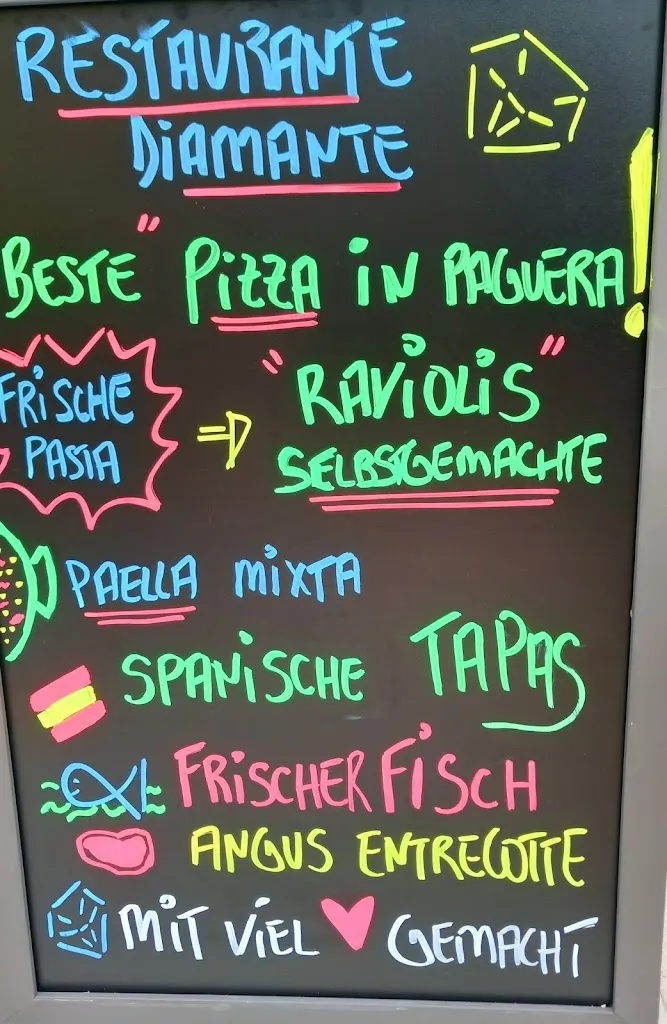 RESTAURANTE
DIAMANTE
BESTE" PIZZA IN PAGUERA!
FRISCHE
PASTA
"RAVIOLIS"
SELBSTGEMACHTE
PAELLA MIXTA
SPANISCHE TAPAS
FRISCHER FISCH
ANGUS ENTRECOTTE
MIT VIEL ♥ GEMACHT